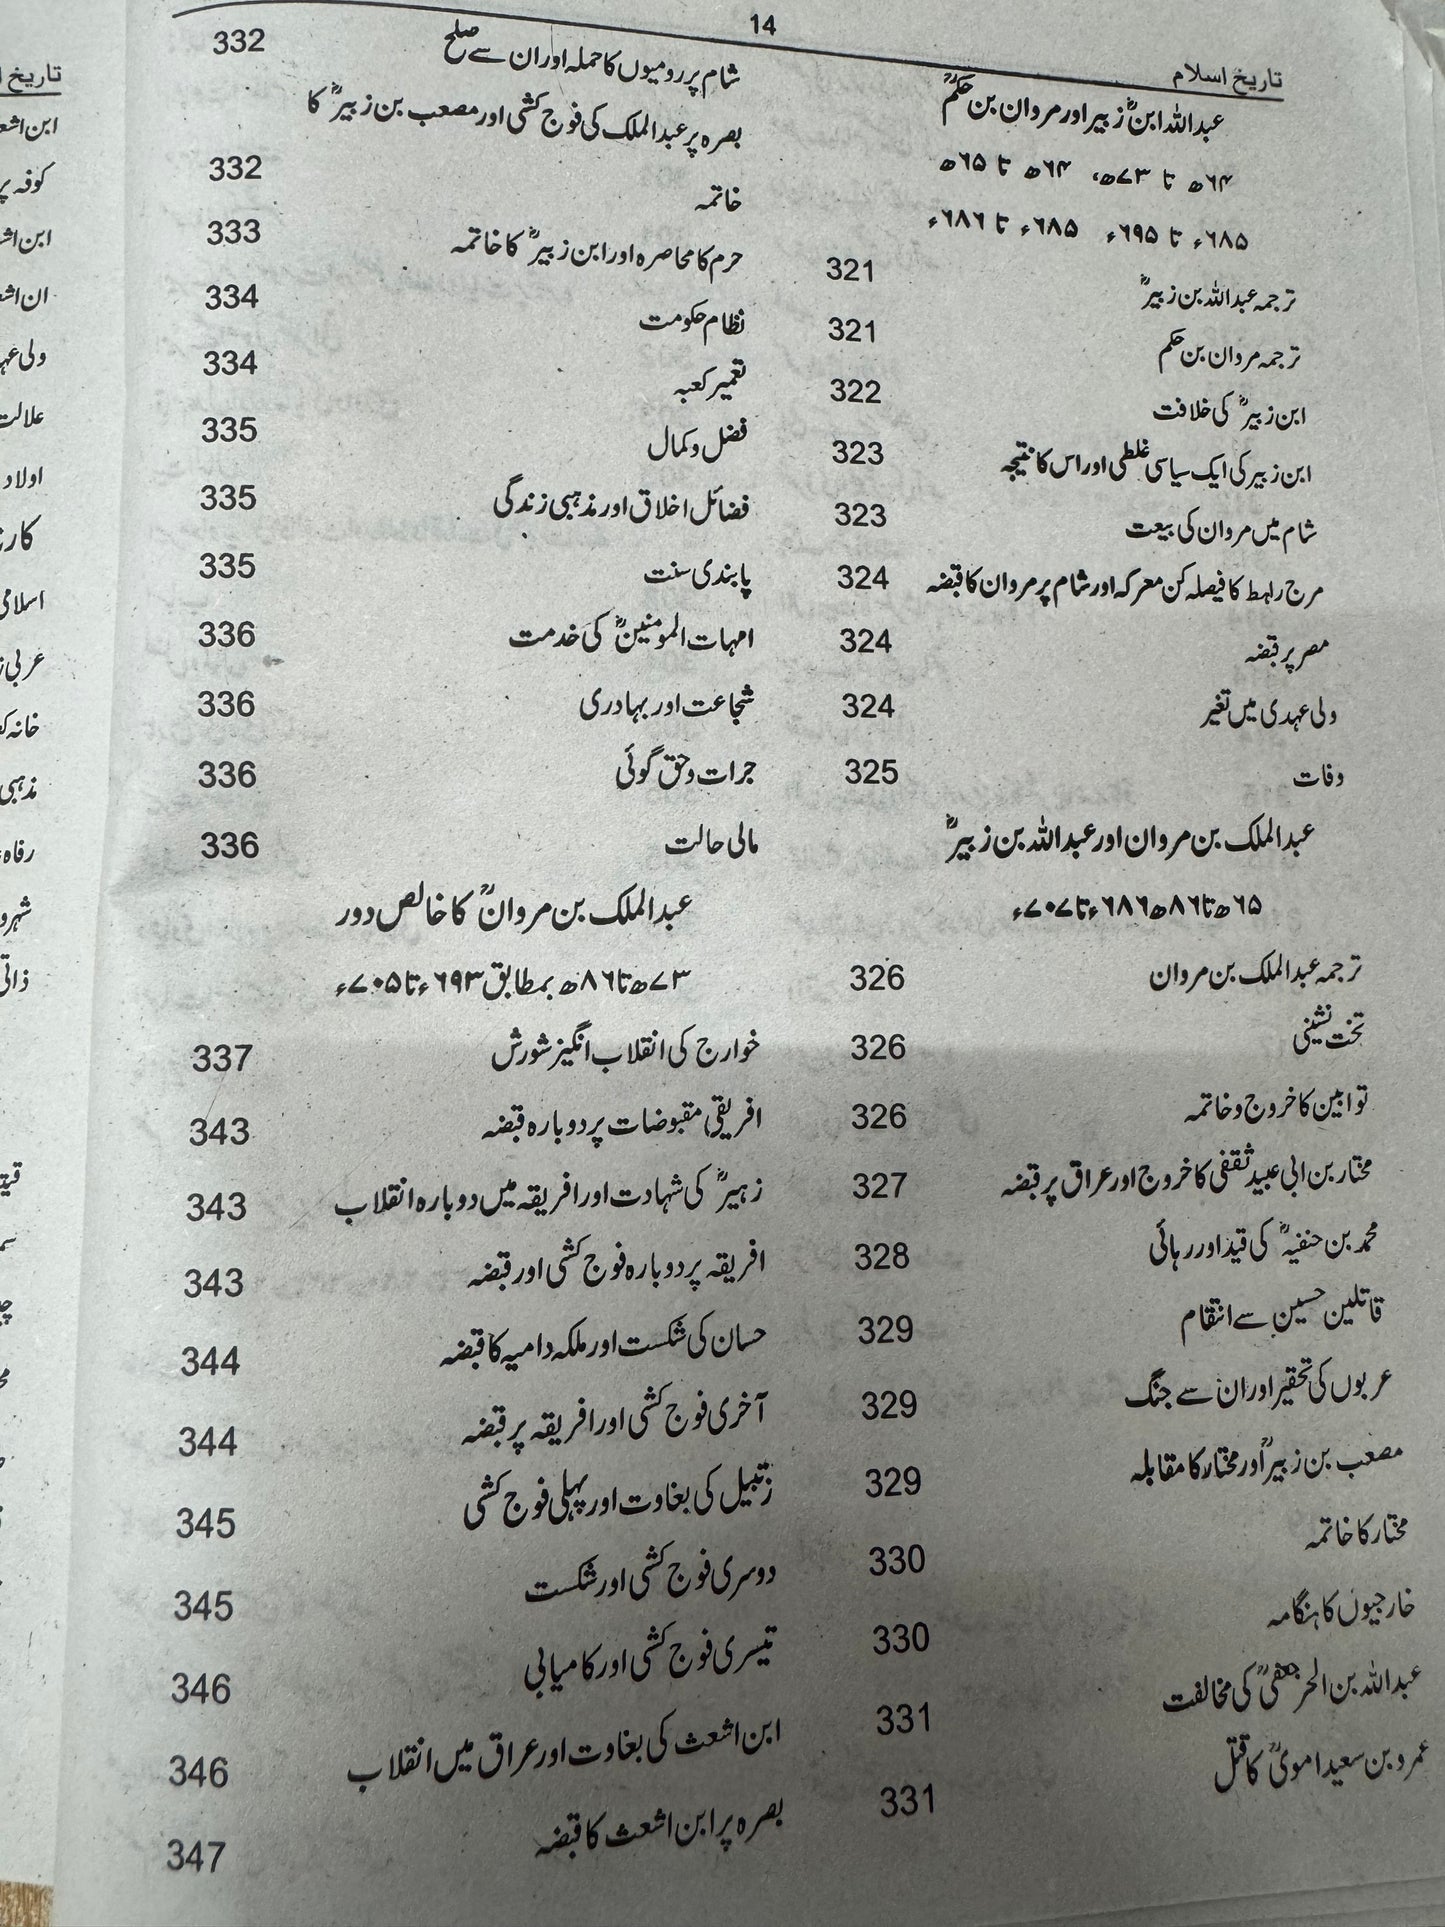 14
تاریخ اسلام
عبداللہ ابنؓ زبیر اور مروان بن حکمؓ
۶۴ھ تا ۷۳ھ، ۶۴ھ تا ۶۵ھ
۶۸۵ء تا ۶۹۵ء ۶۸۵ء تا ۶۸۶ء
ترجمہ عبداللہ بن زبیرؓ 321
ترجمہ مروان بن حکم 321
ابن زبیرؓ کی خلافت 322
ابن زبیر کی ایک سیاسی غلطی اور اس کا نتیجہ 323
شام میں مروان کی بیعت 323
مرج راہط کا فیصلہ کن معرکہ اور شام پر مروان کا قبضہ 324
مصر پر قبضہ 324
ولی عہدی میں تغیر 324
وفات 325
عبدالملک بن مروان اور عبداللہ بن زبیرؓ
۶۵ھ تا ۸۶ھ ۶۸۶ء تا ۷۰۷ء
ترجمہ عبدالملک بن مروان 326
تخت نشینی 326
توابین کا خروج و خاتمہ 326
مختار بن ابی عبید ثقفی کا خروج اور عراق پر قبضہ 327
محمد بن حنفیہؒ کی قید اور رہائی 328
قاتلین حسین سے انتقام 329
عربوں کی تحقیر اور ان سے جنگ 329
مصعب بن زبیرؒ اور مختار کا مقابلہ 329
مختار کا خاتمہ 330
خارجیوں کا ہنگامہ 330
عبداللہ بن الحر جعفیؒ کی مخالفت 331
عمرو بن سعید امویؒ کا قتل 331
شام پر رومیوں کا حملہ اور ان سے صلح 332
بصرہ پر عبدالملک کی فوج کشی اور مصعب بن زبیرؒ کا
خاتمہ 332
حرم کا محاصرہ اور ابن زبیرؓ کا خاتمہ 333
نظام حکومت 334
تعمیر کعبہ 334
فضل و کمال 335
فضائل اخلاق اور مذہبی زندگی 335
پابندی سنت 335
امہات المومنینؓ کی خدمت 336
شجاعت اور بہادری 336
جرات و حق گوئی 336
مالی حالت 336
عبدالملک بن مروانؒ کا خالص دور
۷۳ھ تا ۸۶ھ بمطابق ۶۹۳ء تا ۷۰۵ء
خوارج کی انقلاب انگیز شورش 337
افریقی مقبوضات پر دوبارہ قبضہ 343
زہیرؒ کی شہادت اور افریقہ میں دوبارہ انقلاب 343
افریقہ پر دوبارہ فوج کشی اور قبضہ 343
حسان کی شکست اور ملکہ دامیہ کا قبضہ 344
آخری فوج کشی اور افریقہ پر قبضہ 344
رتبیل کی بغاوت اور پہلی فوج کشی 345
دوسری فوج کشی اور شکست 345
تیسری فوج کشی اور کامیابی 346
ابن اشعث کی بغاوت اور عراق میں انقلاب 346
بصرہ پر ابن اشعث کا قبضہ 347